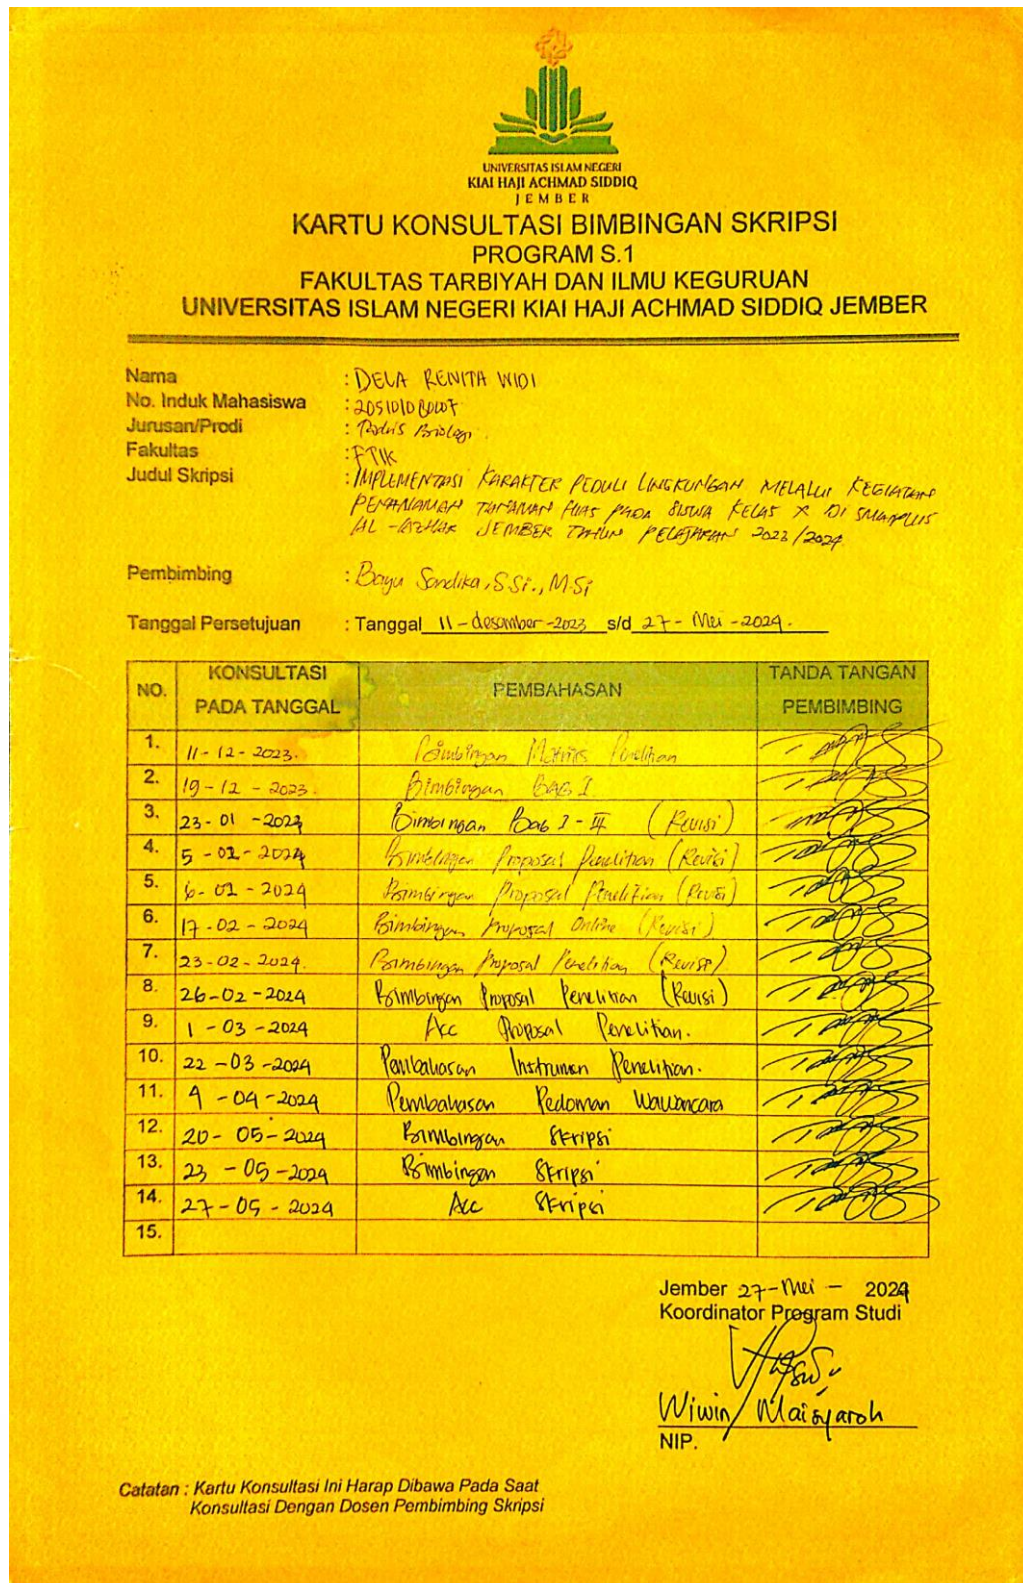 UNIVERSITAS ISLAM NEGERI
KIAI HAJI ACHMAD SIDDIQ
JEMBER
KARTU KONSULTASI BIMBINGAN SKRIPSI
PROGRAM S.1
FAKULTAS TARBIYAH DAN ILMU KEGURUAN
UNIVERSITAS ISLAM NEGERI KIAI HAJI ACHMAD SIDDIQ JEMBER
Nama : DELA RENITA WIDI
No. Induk Mahasiswa :
Jurusan/Prodi : Tadris Biologi
Fakultas : FTIK
Judul Skripsi : IMPLEMENTASI KARAKTER PEDULI LINGKUNGAN MELALUI KEGIATAN
PENANAMAN TANAMAN HIAS PADA SISWA KELAS X DI SMA PLUS
AL-AZHAR JEMBER TAHUN PELAJARAN 2023/2024
Pembimbing : Bayu Sandika, S.Si., M.Si
Tanggal Persetujuan : Tanggal 11-desember-2023 s/d 27-Mei-2024.
NO. KONSULTASI PADA TANGGAL PEMBAHASAN TANDA TANGAN PEMBIMBING
1. 11-12-2023. Bimbingan Matriks Penelitian
2. 19-12-2023. Bimbingan BAB I
3. 23-01-2023 Bimbingan Bab I-III (Revisi)
4. 5-02-2024 Bimbingan Proposal Penelitian (Revisi)
5. 6-02-2024 Bimbingan Proposal Penelitian (Revisi)
6. 17-02-2024 Bimbingan Proposal Online (Revisi)
7. 23-02-2024. Bimbingan Proposal Penelitian (Revisi)
8. 26-02-2024 Bimbingan Proposal Penelitian (Revisi)
9. 1-03-2024 Acc Proposal Penelitian.
10. 22-03-2024 Pembahasan Instrumen Penelitian.
11. 4-04-2024 Pembahasan Pedoman Wawancara
12. 20-05-2024 Bimbingan Skripsi
13. 23-05-2024 Bimbingan Skripsi
14. 27-05-2024 Acc Skripsi
15.
Jember 27-Mei-2024
Koordinator Program Studi
Wiwin Maisyaroh
NIP.
Catatan : Kartu Konsultasi Ini Harap Dibawa Pada Saat
Konsultasi Dengan Dosen Pembimbing Skripsi